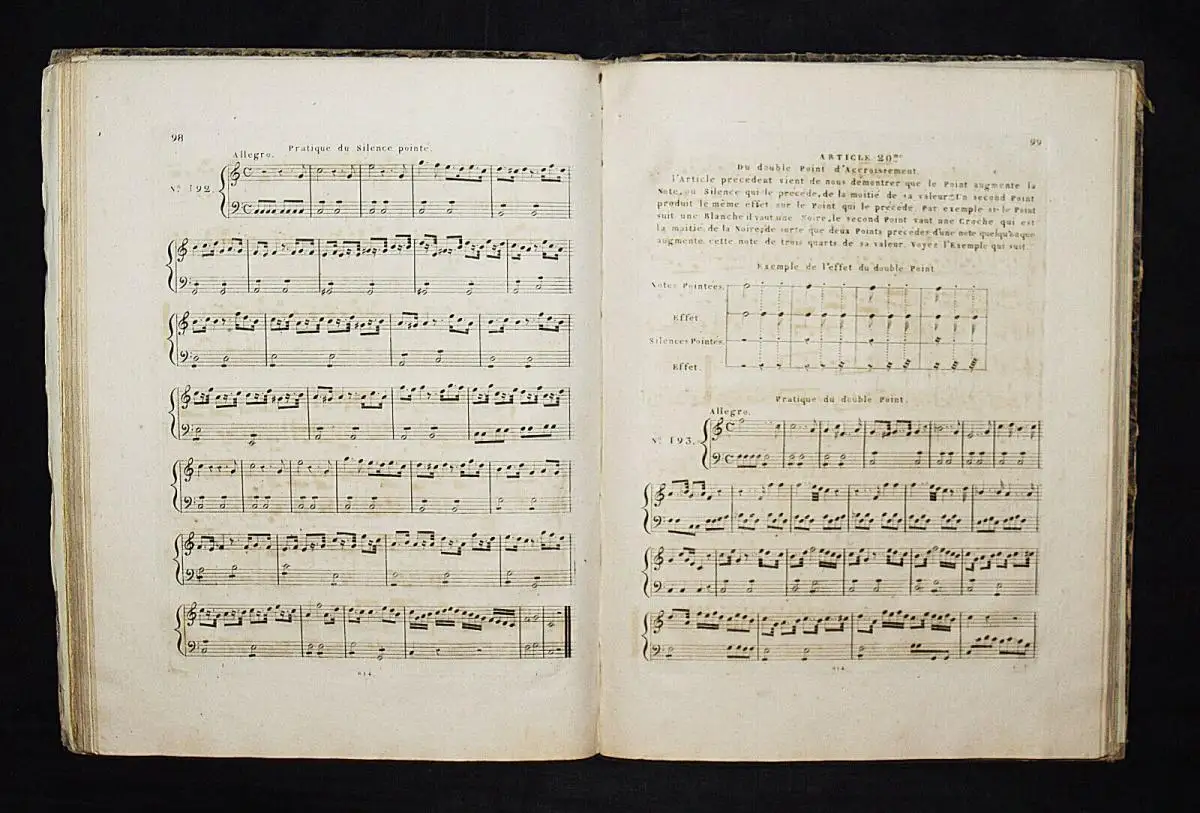 98
Pratique du Silence pointé.
Allegro.
Nº 192.
814.
99
ARTICLE 20me
Du double Point d'Accroissement.
l'Article précédent vient de nous démontrer que le Point augmente la
Note, ou Silence qui le précède, de la moitié de sa valeur: Un second Point
produit le même effet sur le Point qui le précède. Par exemple si le Point
suit une Blanche il vaut une Noire, le second Point vaut une Croche qui est
la moitié de la Noire; de sorte que deux Points précédés d'une note quelquonque
augmente cette note de trois quarts de sa valeur. Voyez l'Exemple qui suit.
Exemple de l'effet du double Point
Notes Pointées.
Effet.
Silences Pointés.
Effet.
Pratique du double Point.
Allegro.
Nº 193.
814.